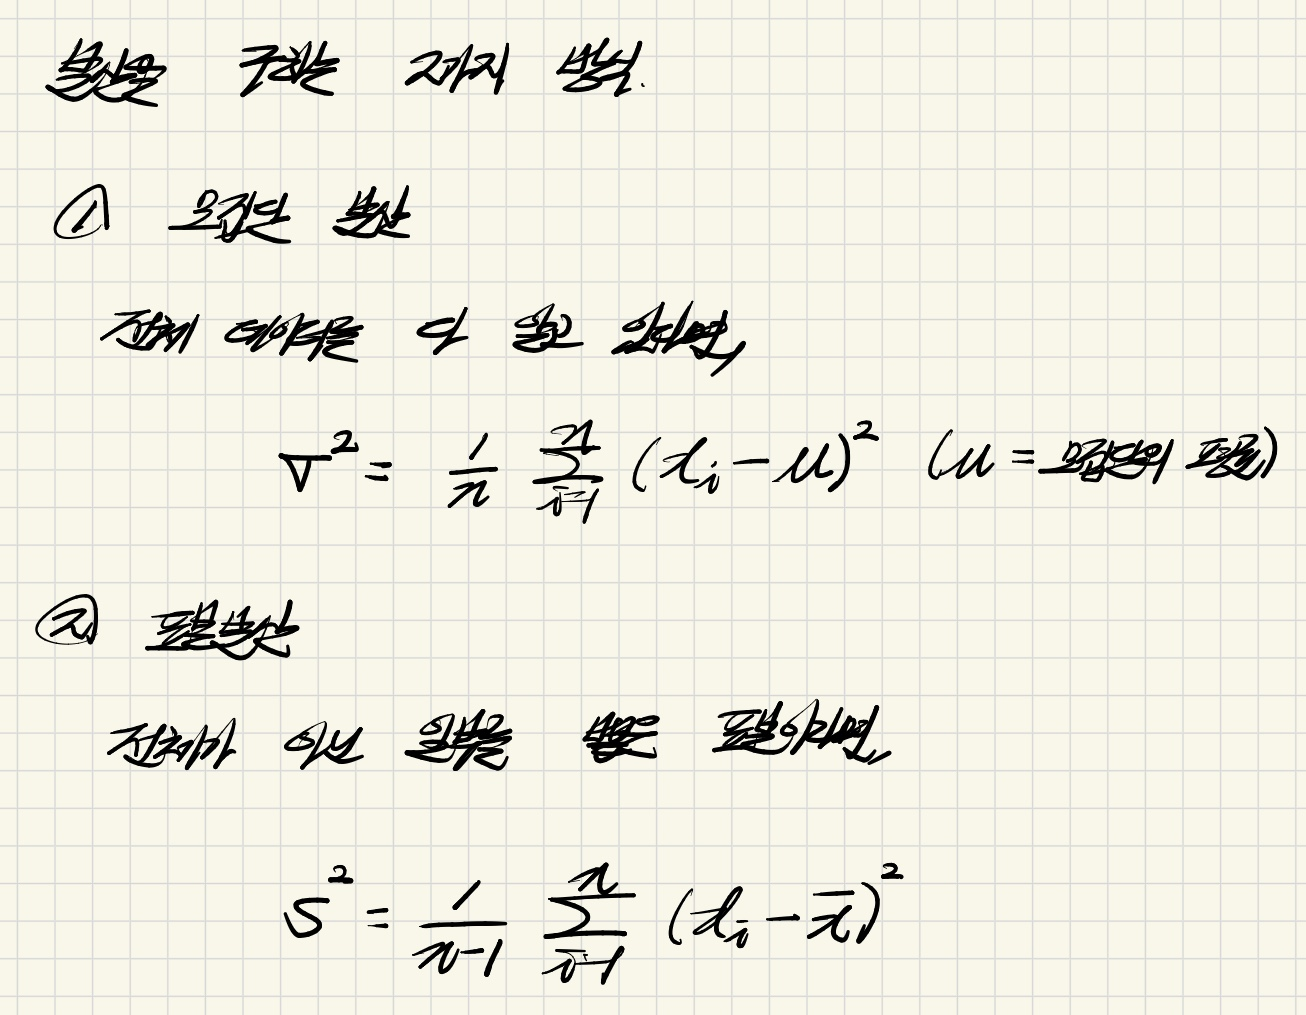 분산을 구하는 2가지 방식.
① 모집단 분산
전체 데이터를 다 알고 있다면,
σ² = 1/n ∑_{i=1}^{n} (x_i - μ)² (μ = 모집단의 평균)
② 표본분산
전체가 아닌 일부를 뽑은 표본이라면,
s² = 1/(n-1) ∑_{i=1}^{n} (x_i - x̄)²